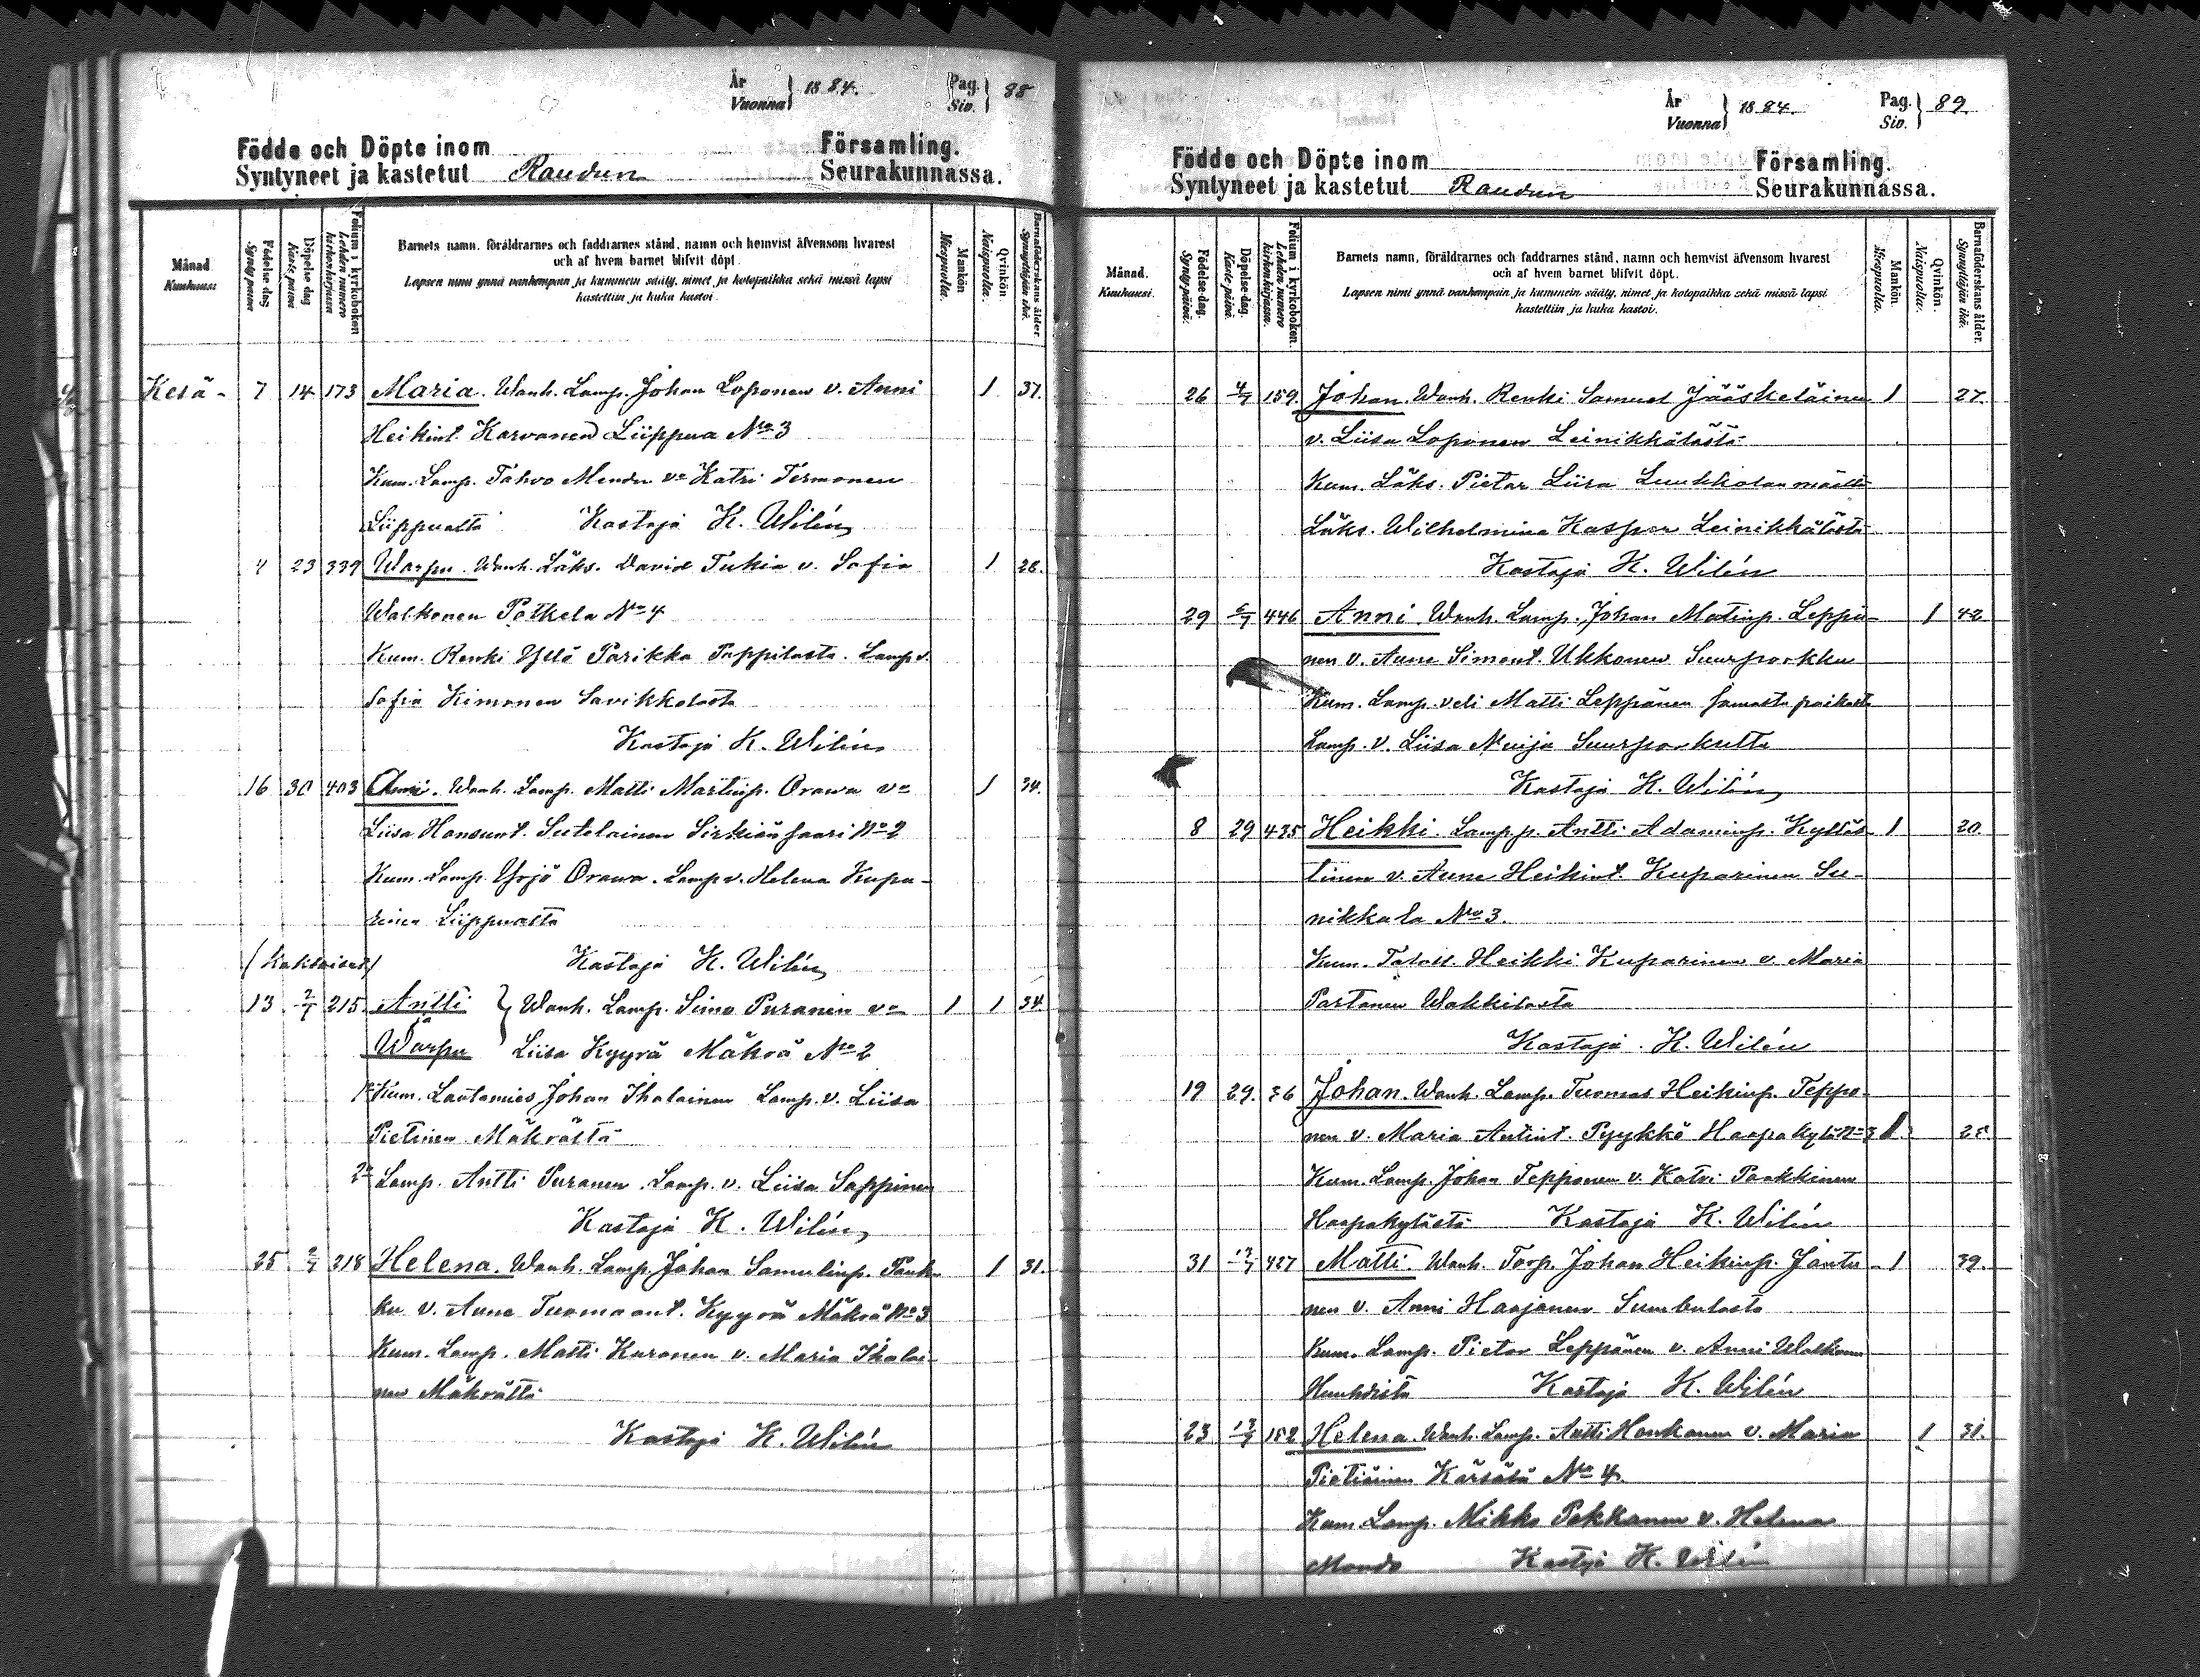 År
Vuonna } 1884.
Pag.
Siv. } 88
Födde och Döpte inom
Syntyneet ja kastetut Raudun
Församling.
Seurakunnassa.
Månad
Kuukausi
Födelse dag
Synty päivä
Döpelse dag
Kaste päivä
Folium i kyrkoboken
Lehden numero kirkonkirjassa
Barnets namn, föräldrarnes och faddrarnes stånd, namn och hemvist äfvensom hvarest
och af hvem barnet blifvit döpt.
Lapsen nimi ynnä vanhempain ja kummein sääty, nimet ja kotopaikka sekä missä lapsi
kastettiin ja kuka kastoi.
Mankön
Miespuolia.
Qvinkön
Naispuolia.
Barnaföderskans ålder.
Synnyttäjän ikä.
Kesä- 7 14 173 Maria. Wanh. Lamp. Johan Loponen v. Anni 1 37.
Heikint. Karvonen Liippua No 3
Kum. Lamp. Tahvo Mendu vo Katri Termonen
Liippualta Kastaja K. Wilén
4 23 339 Warpu. Wanh. Läks. David Tukia v. Sofia 1 26.
Walkonen Potkela No 4
Kum. Renki Yrjö Parikka Pappilasta. Lamp v.
Sofia Kimonen Savikkolasta
Kastaja K. Wilén
16 30 403 Anni. Wanh. Lamp. Matti Martinp. Orawa vo 1 34.
Liisa Hansunt. Sutelainen Sirkiänsaari No 2
Kum. Lamp. Yrjö Orawa. Lamp v. Helena Kupa-
rinen Liippualta
(Kaksoiset) Kastaja K. Wilén
13 2/7 215 Antti } Wanh. Lamp. Simo Puranen vo 1 1 34.
ja
Warpu Liisa Kyyrä Mäkrä No 2
1o Kum. Lautamies Johan Ihalainen Lamp. v. Liisa
Pietinen Mäkrältä
2o Lamp. Antti Puranen. Lamp. v. Liisa Sappinen
Kastaja K. Wilén
25 2/7 218 Helena. Wanh. Lamp. Johan Samulinp. Pauk- 1 31.
ku v. Aune Tuomaant. Kyyrä Mäkrä No 3
Kum. Lamp. Matti Kuronen v. Maria Ihalai-
nen Mäkrältä
Kastaja K. Wilén
År
Vuonna } 1884.
Pag.
Siv. } 89.
Födde och Döpte inom
Syntyneet ja kastetut Raudun
Församling.
Seurakunnassa.
Månad.
Kuukausi.
Födelse-dag.
Synty-päivä.
Döpelse-dag.
Kaste-päivä.
Folium i kyrkoboken.
Lehden numero kirkonkirjassa.
Barnets namn, föräldrarnes och faddrarnes stånd, namn och hemvist äfvensom hvarest
och af hvem barnet blifvit döpt.
Lapsen nimi ynnä vanhempain ja kummein sääty, nimet ja kotopaikka sekä missä lapsi
kastettiin ja kuka kastoi.
Mankön.
Miespuolia.
Qvinkön.
Naispuolia.
Barnaföderskans ålder.
Synnyttäjän ikä.
26 4/7 159. Johan. Wanh. Renki Samuel Jääskeläinen 1 27.
v. Liisa Loponen Leinikkälästä
Kum. Läks. Pietar Liira Luukkolan mäiltä
Läks. Wilhelmina Kasper Leinikkälästä
Kastaja K. Wilén
29 6/7 446 Anni. Wanh. Lamp. Johan Matinp. Leppä- 1 42
nen v. Aune Simont. Ukkonen Suurporkku
Kum. Lamp. veli Matti Leppänen samasta paikasta
Lamp. v. Liisa Nuija Suurporkulta
Kastaja K. Wilén
8 29 425 Heikki. Lamp p. Antti Adaminp. Kylläs- 1 20.
tinen v. Aune Heikint. Kuparinen Su-
nikkala No 3.
Kum. Taloll. Heikki Kuparinen v. Maria
Partanen Wakkilasta
Kastaja. K. Wilén
19 29. 36 Johan. Wanh. Lamp. Tuomas Heikinp. Teppo-
nen v. Maria Antint. Pyykkö Haapakylä No 3 1. 25
Kum. Lamp. Johan Tepponen v. Katri Paakkinen
Haapakylästä Kastaja K. Wilén
31 13/7 427 Matti. Wanh. Torp. Johan Heikinp. Jantu- 1 39.
nen v. Anni Haajanen Sumbulasta
Kum. Lamp. Pietar Leppänen v. Anni Walkonen
Huuhdista Kastaja K. Wilén
23 13/7 152 Helena. Wanh. Lamp. Antti Honkanen v. Maria 1 31.
Pietiäinen Kärsälä No 4.
Kum. Lamp. Mikko Pekkanen v. Helena
Mondo Kastaja K. Wilén